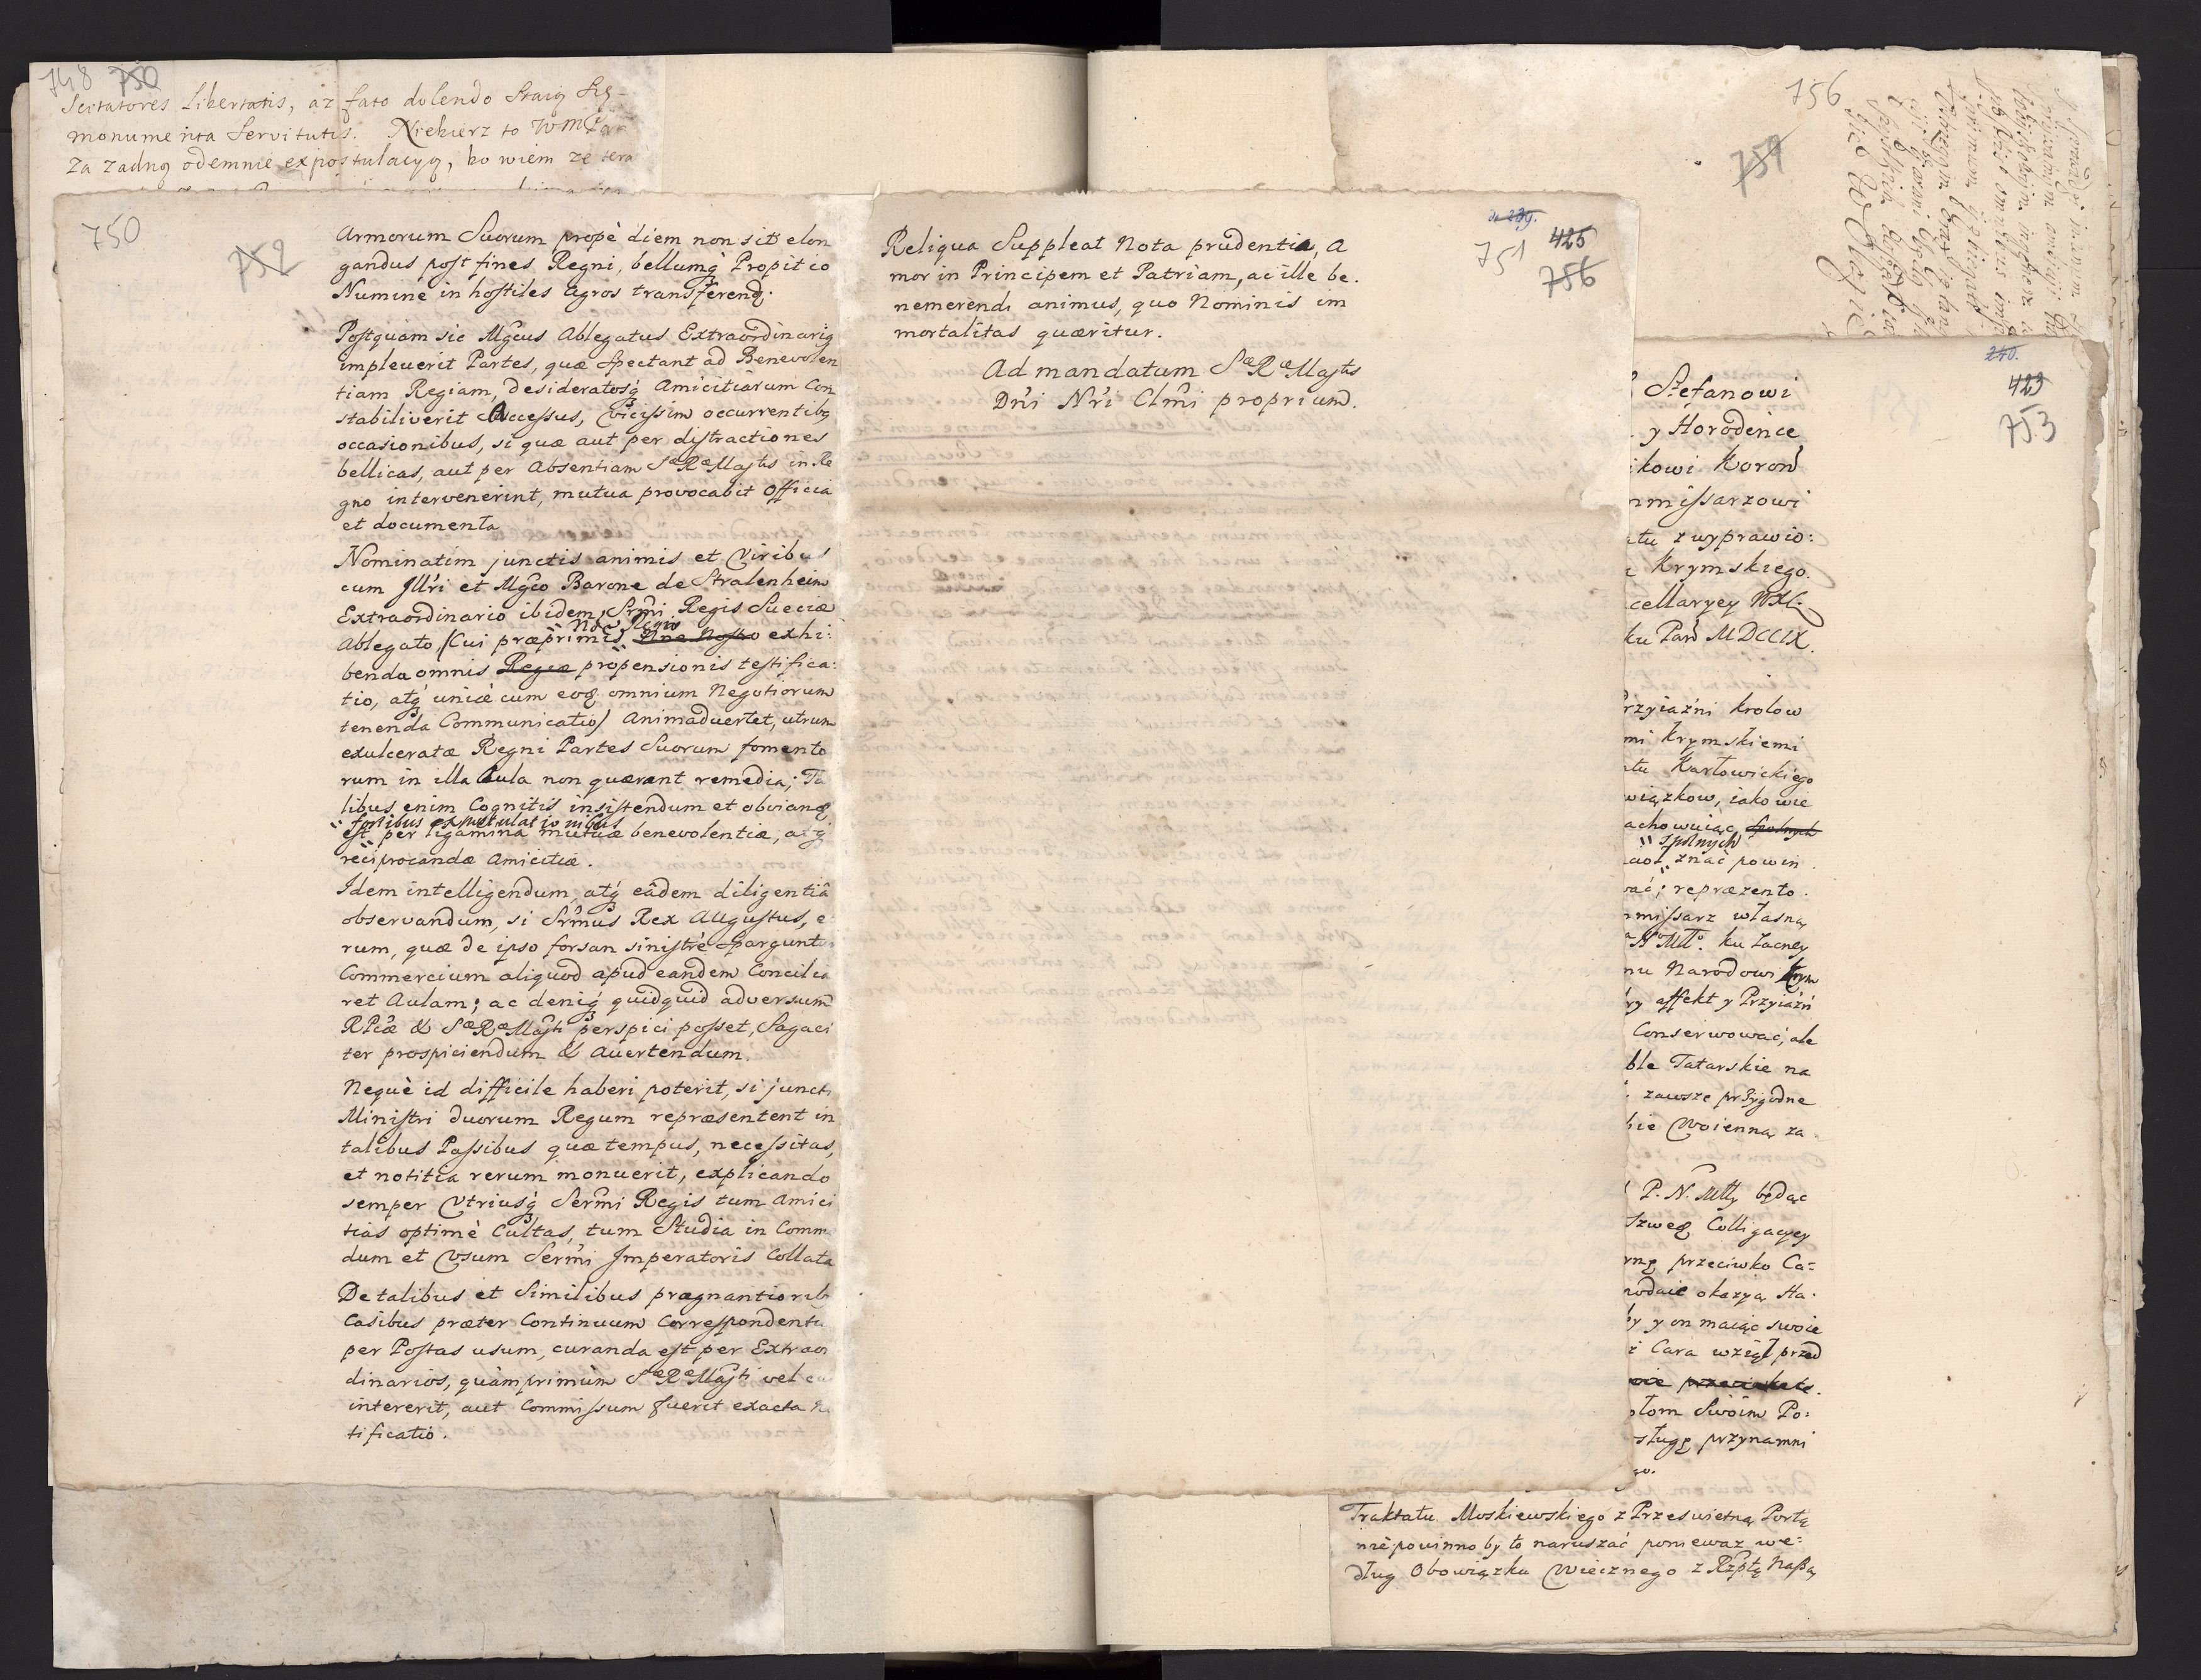 748 750
Sectatores Libertatis, az fato dolendo staią się
monumenta Servitutis. Niekierz to WMPan
za zadną odemnie expostulacyą, bo wiem ze tera
750
752
Armorum Suorum propè diem non sit elon
gandus post fines Regni, bellumq́ Propitio
Numine in hostiles agros transferend.
Postquam sic Mgcus Ablegatus Extraordinariq
impleuerit Partes, quæ spectant ad Benevolen
tiam Regiam, desideratosq́ Amicitiarum Con
stabiliverit Accessus, vicissim occurrentibq
occasionibus, si quæ aut per distractiones
bellicas, aut per Absentiam Sæ Ræ Majtis in Re
gno intervenerint, mutua provocabit Officia
et documenta
Nominatim junctis animis et Viribus
cum Jllri et Mgco Barone de Stralenheim
Extraordinario ibidem Srmi Regis Sueciæ
Nõe Regio
Ablegato, (Cui præprimis Nne Nostro exhi:
benda omnis Regiæ propensionis testifica:
tio, atq́ unicè cum eoq omnium Negotiorum
tenenda Communicatio) Animaduertet, utrum
exulceratæ Regni Partes Suorum fomento
rum in illa Aula non quærant remedia; Ta
libus enim Cognitis insistendum et obviandq
fortibus expostulationibus
est per ligamina mutuæ benevolentiæ, atq́
reciprocandæ Amicitiæ.
Idem intelligendum atq́ eâdem diligentiâ
observandum, si Srmus Rex Augustus, e
rum, quæ de ipso forsan sinistrè sparguntur
Commercium aliquod apud eandem Concilia
ret Aulam; ac deniq́ quidquid adversum
RPcæ & Sæ Ræ Majti perspici posset, Sagaci
ter prospiciendum & Auertendum.
Nequè id difficile haberi poterit, si juncti
Ministri duorum Regum repræsentent in
talibus Passibus quæ tempus, necessitas,
et notitia rerum monuerit, explicando
semper Utriusq́ Sermi Regis tum Amici
tias optimè Cultas, tum Studia in Commo
dum et Usum Sermi Jmperatoris Collata
De talibus et Similibus prægnantiorib
Casibus præter Continuum Correspondentiæ
per Postas usum, curanda est per Extraor
dinarios, quàmprimùm Sæ Ræ Majti vel ea
intererit, aut Commissum fuerit exacta no
tificatio.
239.
751 425
756
Reliqua Suppleat Nota prudentia, A
mor in Principem et Patriam, ac ille be.
nemerendi animus, quo Nominis im
mortalitas quæritur.
Ad mandatum Sæ Ræ Majtis
Dni Nri Clmi proprium.
756
757
240.
423
753
Stefanowi
y Horodence
ikowi Koron
mmissarzowi
atu z wyprawio:
Krymskiego.
cellaryey WXL.
ku Pań MDCCIX.
rzyiaźni krolow
mi Krymskiemi
atu Karłowickiego
wiązkow, iako wie
achowuiąc spolnych
spolnych
znać powin
ać; repræzento.
mmissarz własną
ku zacney
nu Narodowi krym
ry affekt y Przyiaźń
Conserwować, ale
ble Tatarskie na
zawsze przygodne
bie Woienną za
P. N. Mtty będąc
Colligacyey
rnę przeciwko Ca=
podaie okazyą Ha.
by y on maiąc swoie
i Cara wziął przed
ołom Swoim Po:
sługę przynamni
Traktatu Moskiewskiego z Prześwietną Portą
nie powinno by to naruszać poniewaz we=
dług Obowiązku Wiecznego z Rzptą Naszą